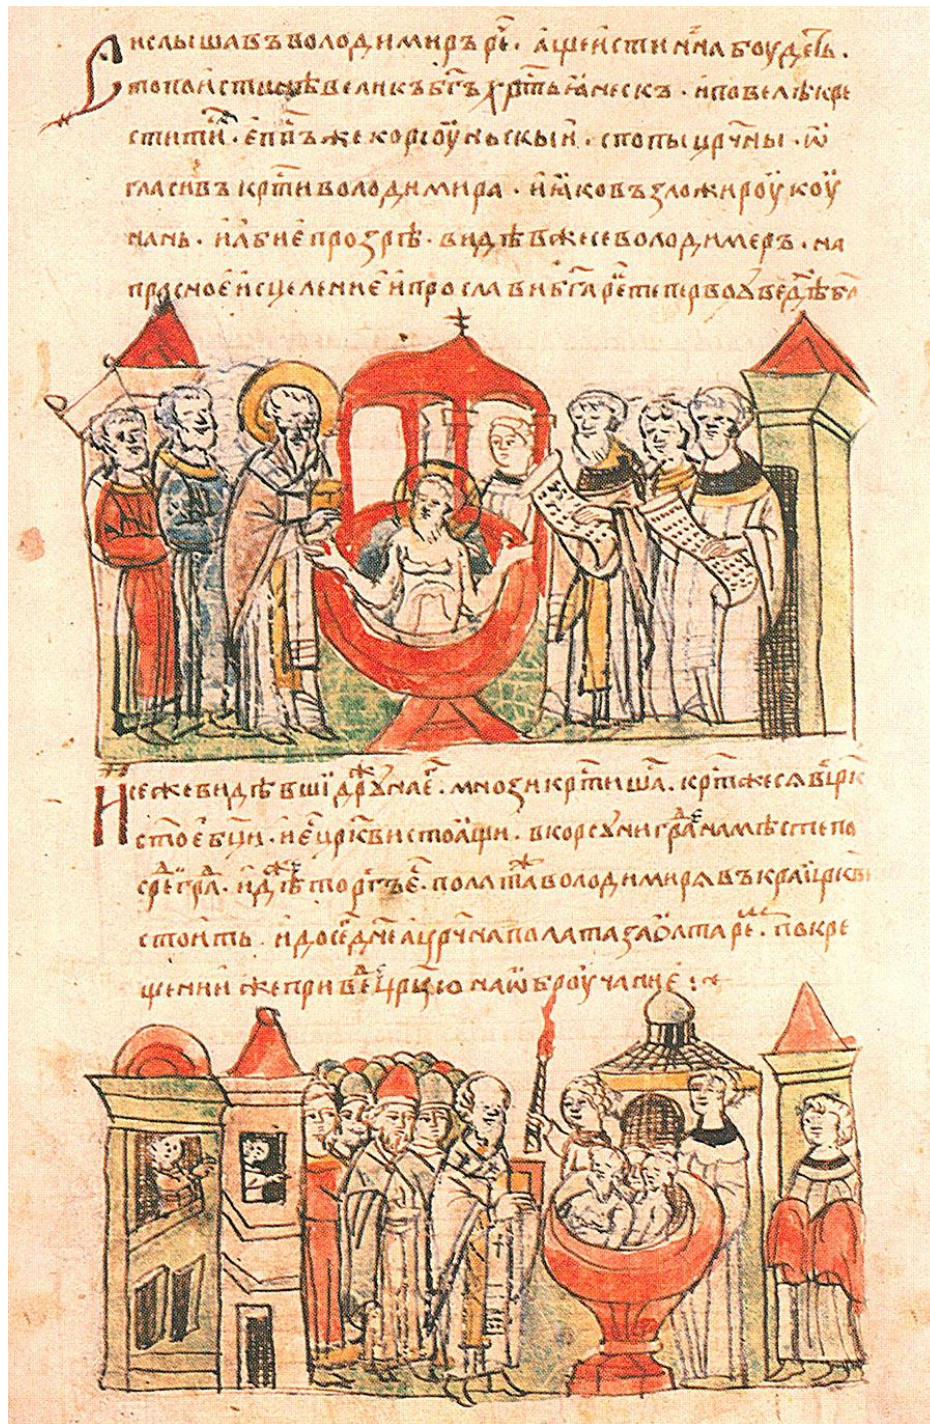 Си слышавъ володимиръ рче. аще истинна боудеть.
то поистинѣ великъ бг҃ъ хрⷭ҇тьꙗнескъ. и повелѣ кре
стити. еппⷭ҇ъ же корсоуньскыи. с попы цр҃цны. ѡ
гласивъ крⷭ҇ти володимира. и ꙗко възложи роукоу
нань. и абие прозрѣ. видѣвже се володимеръ. на
прасное исцеление и прослави бг҃а рек те первоꙗ ведѣ ба
Се же видѣвши дружⷤина е҆г. мнози крⷭ҇тишаⷭ. крⷭ҇т же ся в цр҃к
стое бц҃и. и е҆ цр҃кви стоꙗщи. в корсуни градѣ на мѣсте по
среди града. идѣже торгъ еⷭ. полата же володимиря въ краи цр҃кви
стоить и до сег дн҃е а цр҃цна полата за ѡлтаремⷨ. по кре
щении же приведе цр҃цю на ѡброучание :